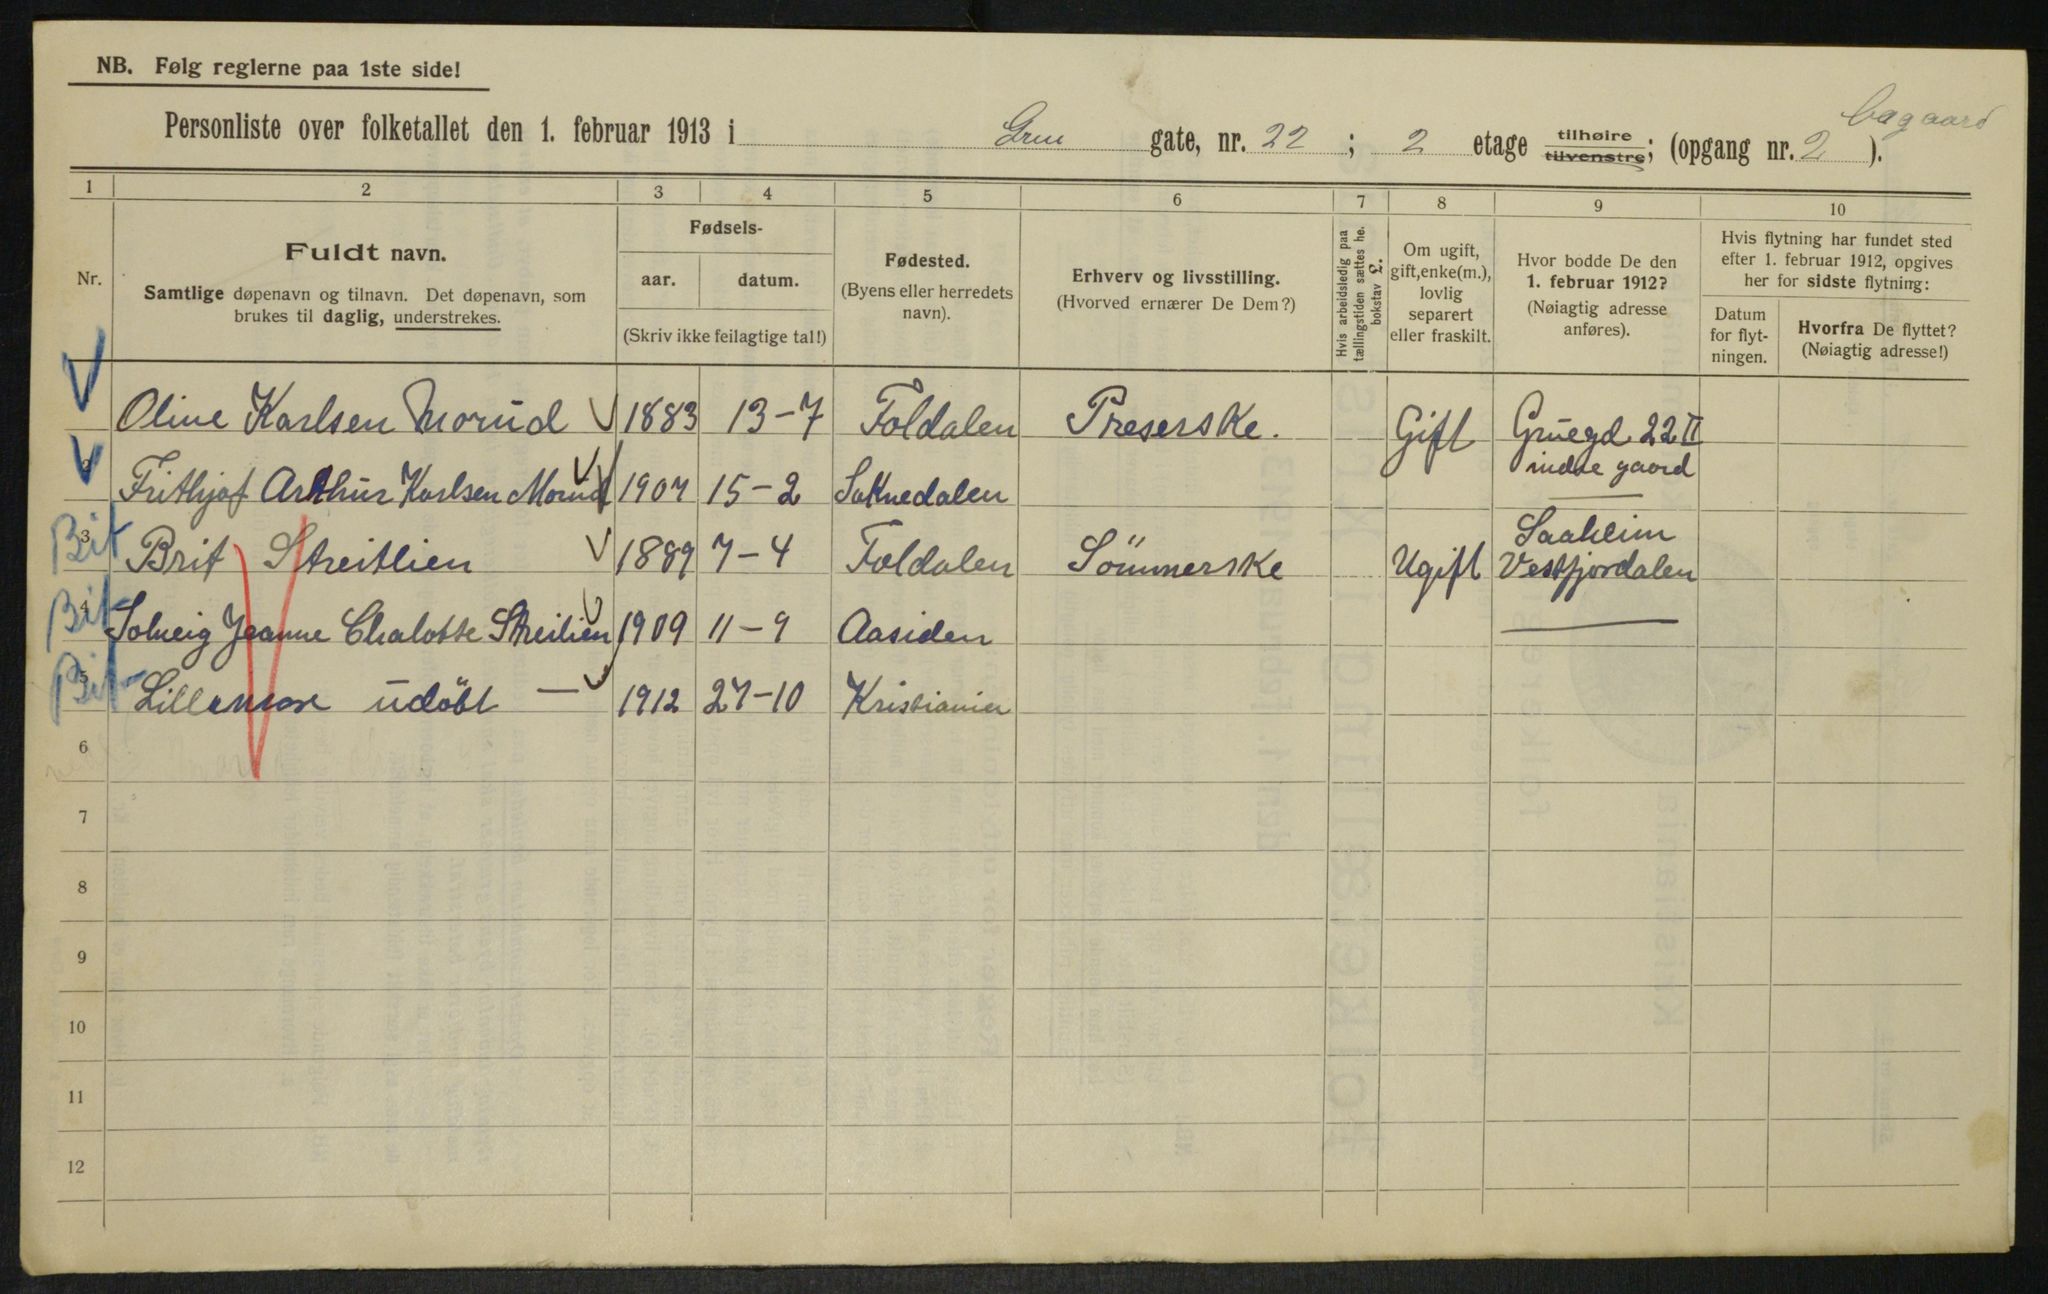 NB. Følg reglerne paa 1ste side!
Bagaard
Personliste over folketallet den 1. februar 1913 i Grue gate, nr. 22 ; 2 etage tilhøire tilvenstre; (opgang nr. 2 ).
1 2 3 4 5 6 7 8 9 10
Nr.
Fuldt navn.
Samtlige døpenavn og tilnavn. Det døpenavn, som
brukes til daglig, understrekes.
Fødsels-
aar. datum.
(Skriv ikke feilagtige tal!)
Fødested.
(Byens eller herredets
navn).
Erhverv og livsstilling.
(Hvorved ernærer De Dem?)
Hvis arbeidsledig paa
tællingstiden sættes he.
bokstav L.
Om ugift,
gift, enke(m.),
lovlig
separert
eller fraskilt.
Hvor bodde De den
1. februar 1912?
(Nøiagtig adresse
anføres).
Hvis flytning har fundet sted
efter 1. februar 1912, opgives
her for sidste flytning:
Datum
for flyt-
ningen.
Hvorfra De flyttet?
(Nøiagtig adresse!)
Oline Karlsen Morud 1883 13-7 Foldalen Preserske. Gift Gruegd 22 II
indre gaard
2 Frithjof Arthur Karlsen Morud 1907 15-2 Soknedalen
Bit 3 Brit Streitlien 1889 7-4 Foldalen Sömmerske Ugift Saaheim
Vestfjordalen
Bit 4 Solveig Jeanne Chalotte Streilien 1909 11-9 Aasiden
Bit 5 Lillemor udöbt — 1912 27-10 Kristiania
6
7
8
9
10
11
12